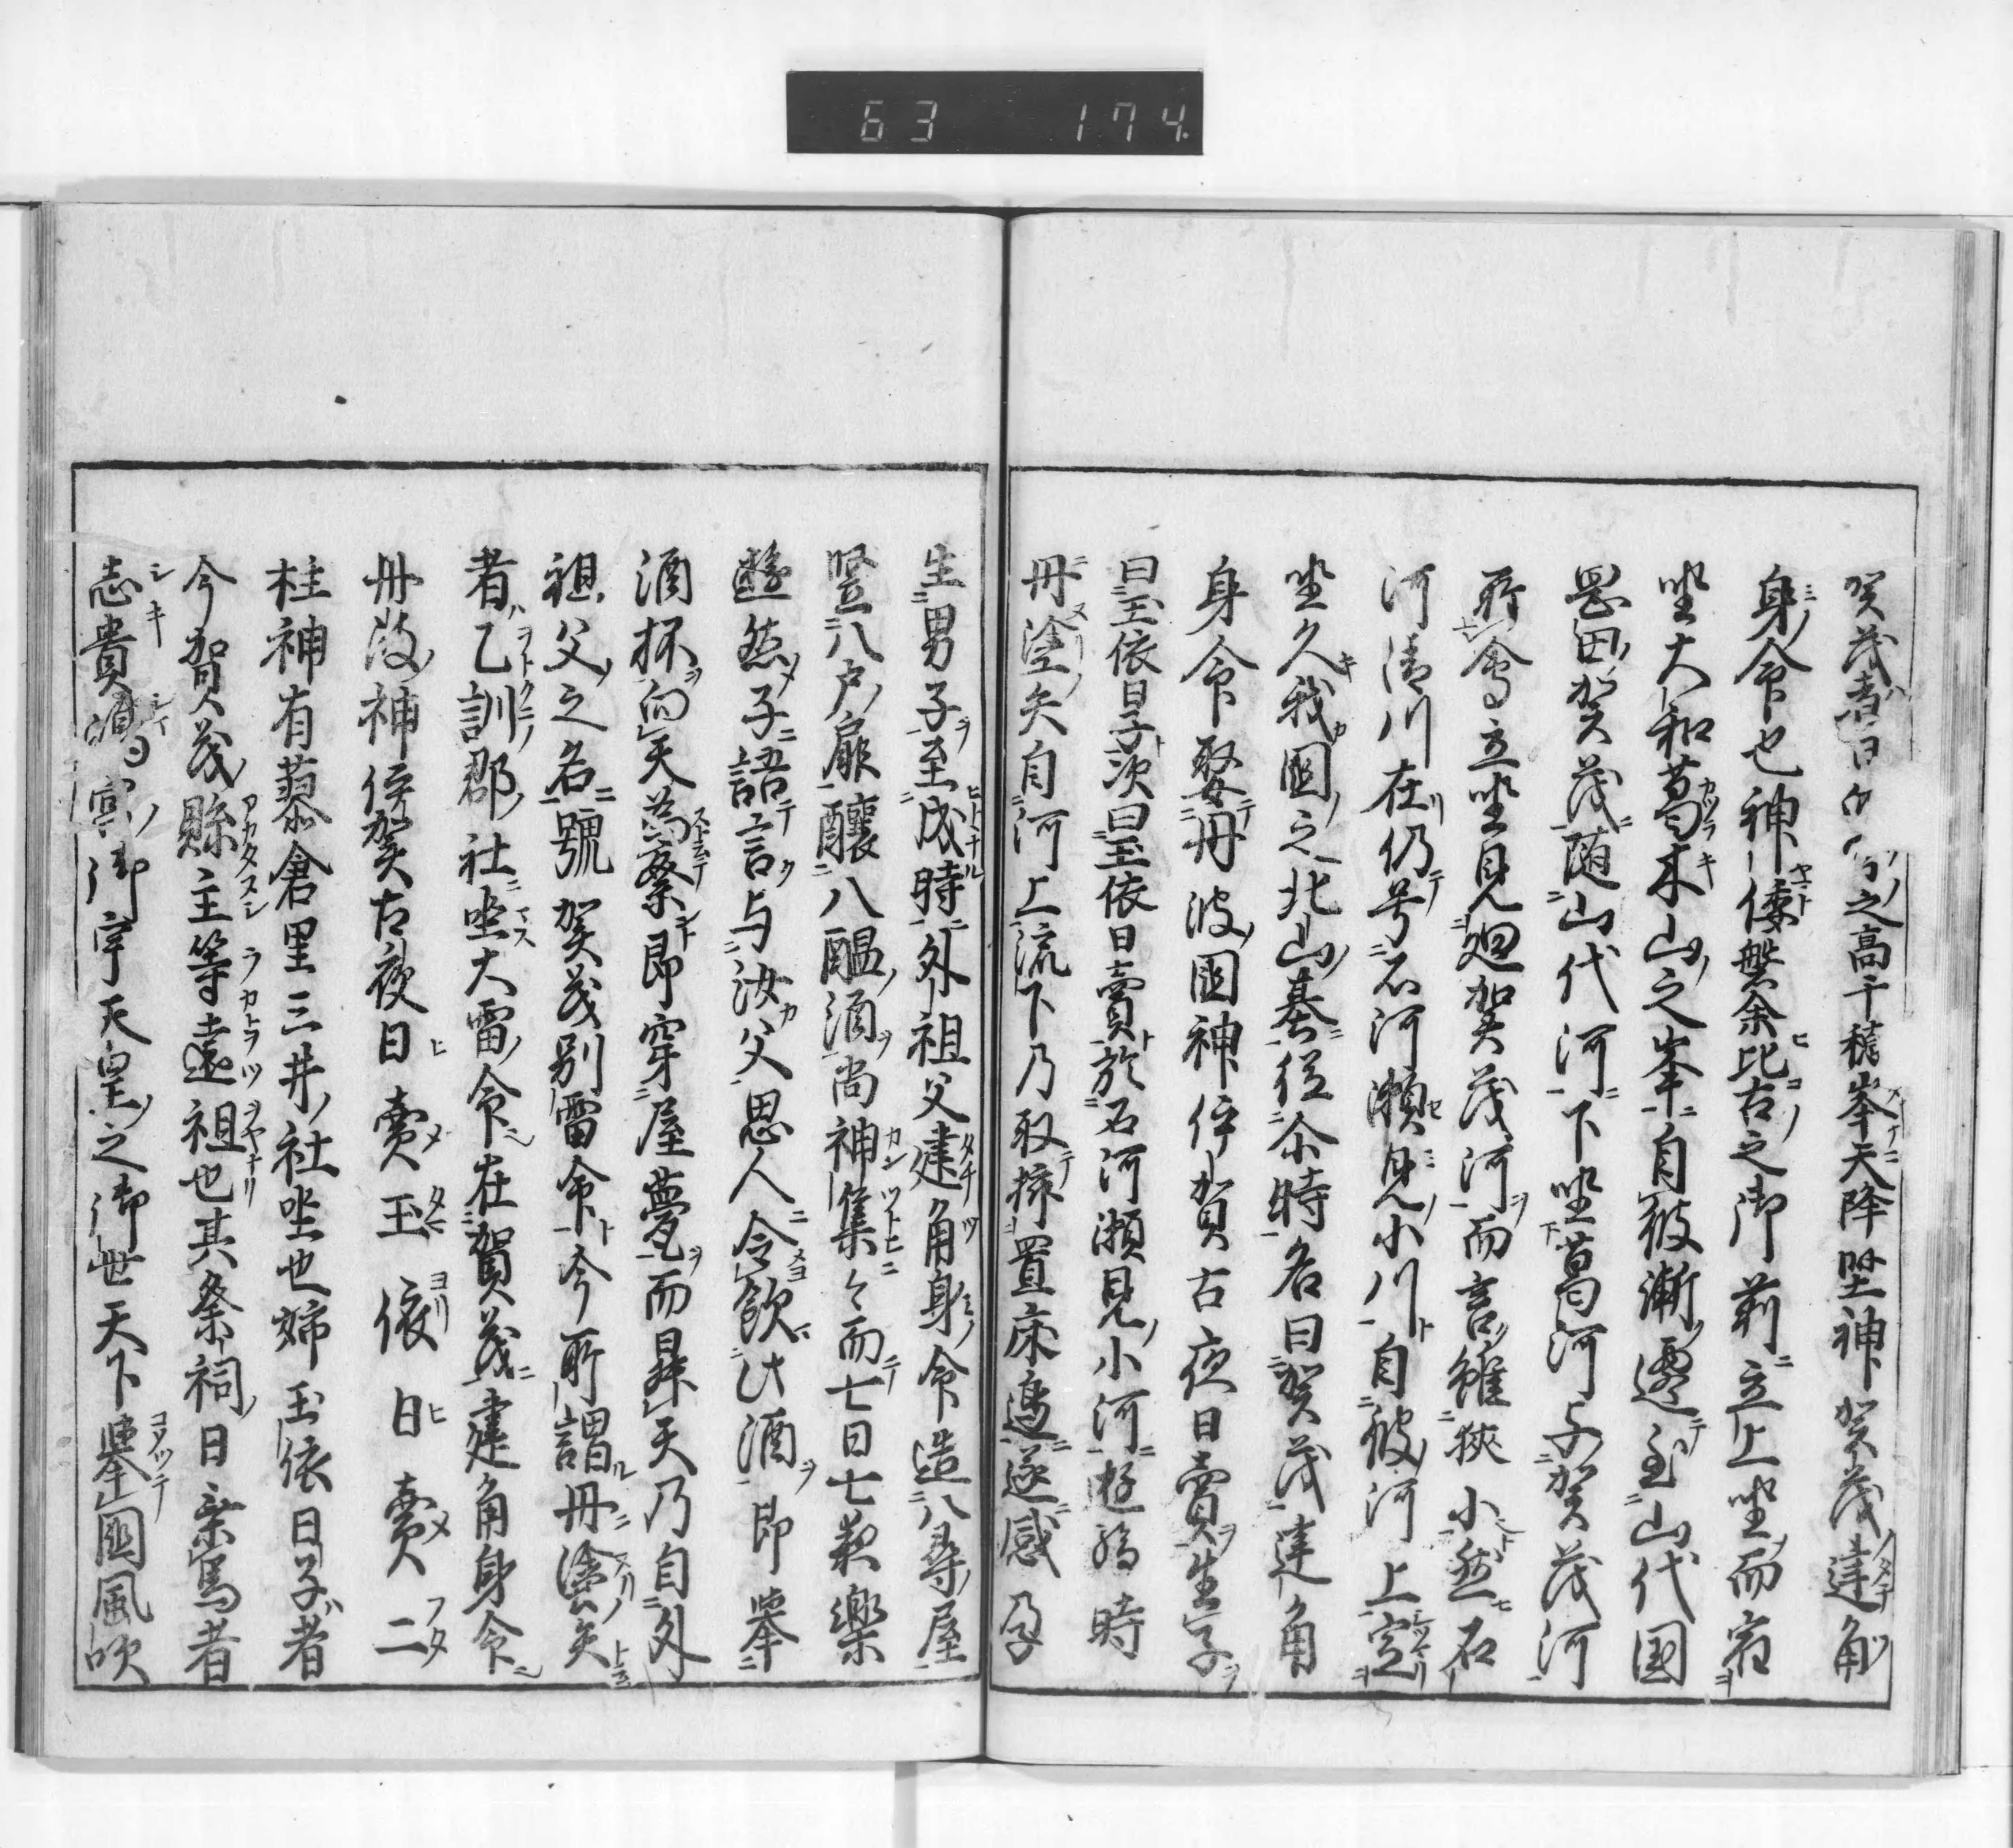 63 174.
賀茂者日向之高千穂峯天降坐神賀茂建角
身命也神倭磐余比古之御前立上坐而宿
坐大和葛木山之峯自彼漸遷至山代国
岡田賀茂随山代河下坐葛河与賀茂河
所会立坐見廻賀茂河而言雖狭小然石
河清川在仍号石河瀬見小川自彼河上定
坐久我国之北山基従尓時名曰賀茂建角
身命娶丹波国神伊賀古夜日賣生子
曰玉依日子次曰玉依日賣於石河瀬見小河遊為時
丹塗矢自河上流下乃取挿置床邊遂感孕
生男子至成時外祖父建角身命造八尋屋
竪八戸扉醸八醞酒尚神集々而七日七夜樂
遊然子語言与汝父思人令飲此酒即挙
酒杯向天為祭即穿屋甍而昇天乃自外
祖父之名号賀茂別雷命今所謂丹塗矢
者乙訓郡社坐大雷命在賀茂建角身命
丹波神伊賀古夜日賣玉依日賣二
柱神有蓼倉里三井社坐也姉玉依日子者
今賀茂縣主等遠祖也其祭祀日乗馬者
志貴嶋宮御宇天皇之御世天下挙国風吹